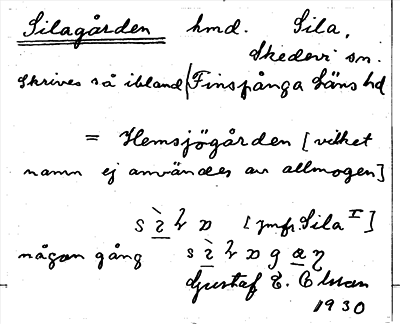 Silagården hmd. Sila,
Skedevi sn.
Skrives så ibland Finspånga Läns hd
= Hemsjögården [vilket
namn ej användes av allmogen]
[jmfr. Sila I]
någon gång
Gustaf E. Olsson
1930